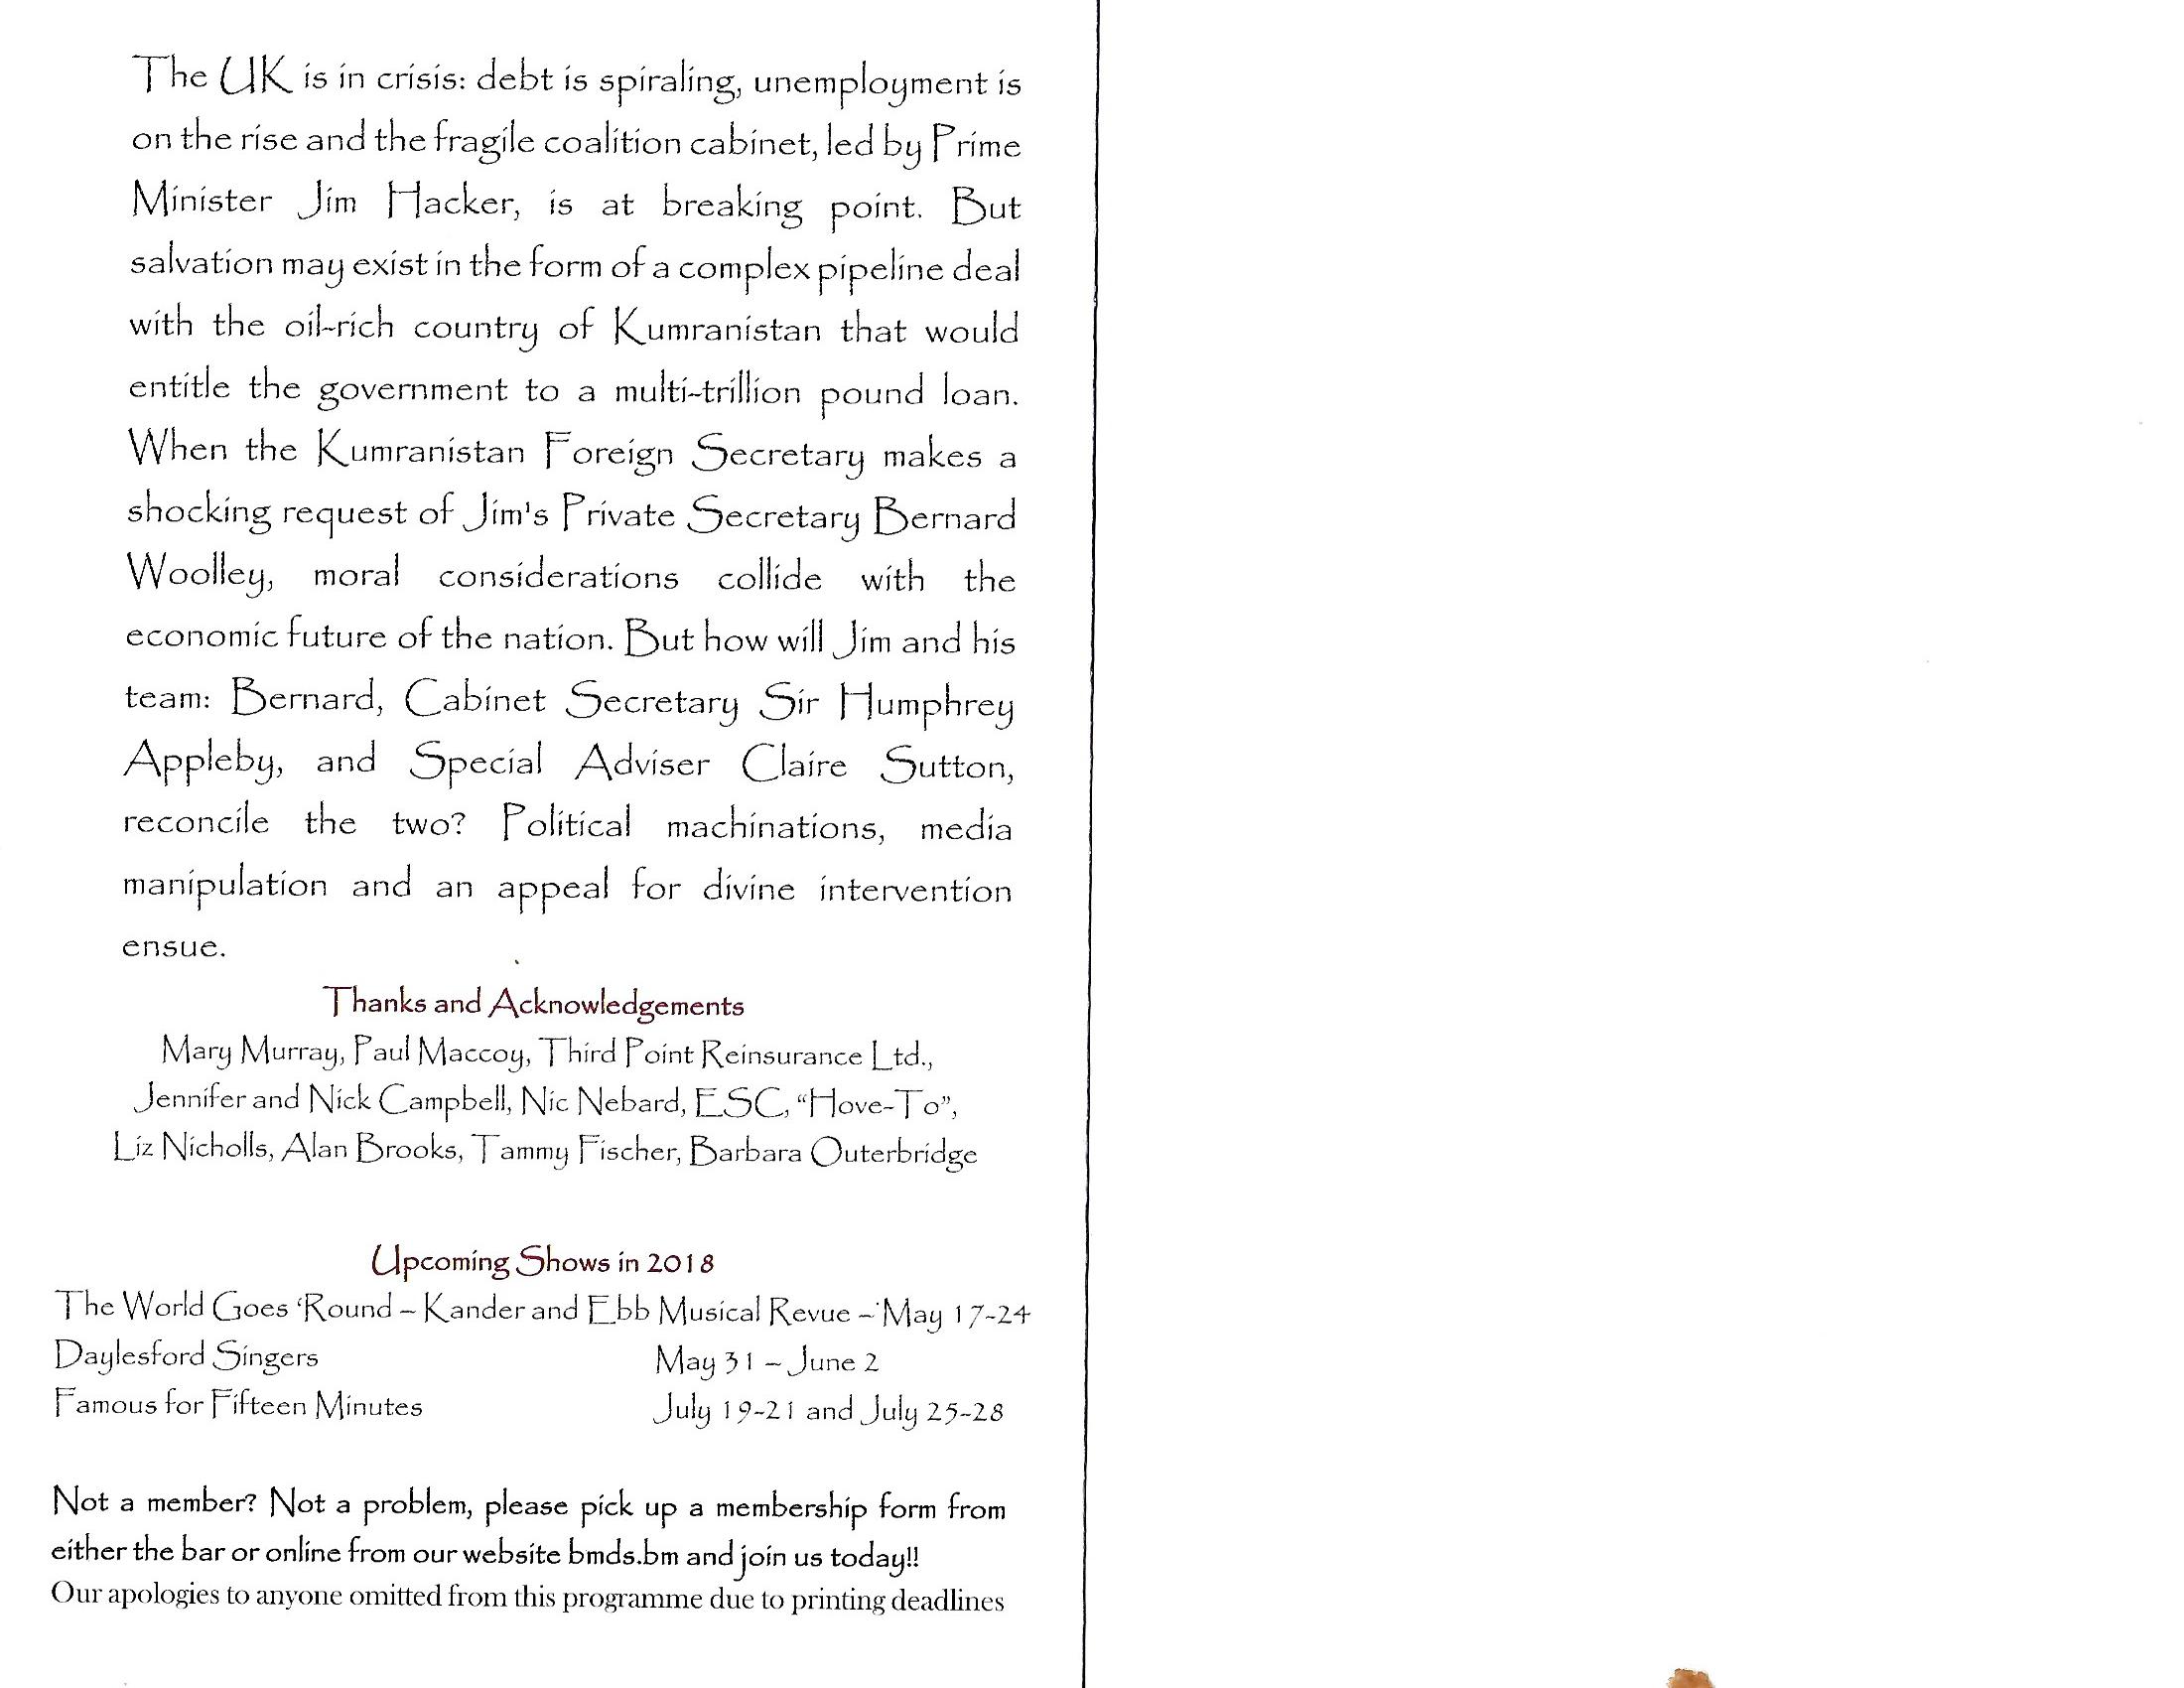 The UK is in crisis: debt is spiraling, unemployment is
on the rise and the fragile coalition cabinet, led by Prime
Minister Jim Hacker, is at breaking point. But
salvation may exist in the form of a complex pipeline deal
with the oil-rich country of Kumranistan that would
entitle the government to a multi-trillion pound loan.
When the Kumranistan Foreign Secretary makes a
shocking request of Jim's Private Secretary Bernard
Woolley, moral considerations collide with the
economic future of the nation. But how will Jim and his
team: Bernard, Cabinet Secretary Sir Humphrey
Appleby, and Special Adviser Claire Sutton,
reconcile the two? Political machinations, media
manipulation and an appeal for divine intervention
ensue.
Thanks and Acknowledgements
Mary Murray, Paul Maccoy, Third Point Reinsurance Ltd.,
Jennifer and Nick Campbell, Nic Nebard, ESC, “Hove-To”,
Liz Nicholls, Alan Brooks, Tammy Fischer, Barbara Outerbridge
Upcoming Shows in 2018
The World Goes ‘Round – Kander and Ebb Musical Revue – May 17-24
Daylesford Singers May 31 – June 2
Famous for Fifteen Minutes July 19-21 and July 25-28
Not a member? Not a problem, please pick up a membership form from
either the bar or online from our website bmds.bm and join us today!!
Our apologies to anyone omitted from this programme due to printing deadlines